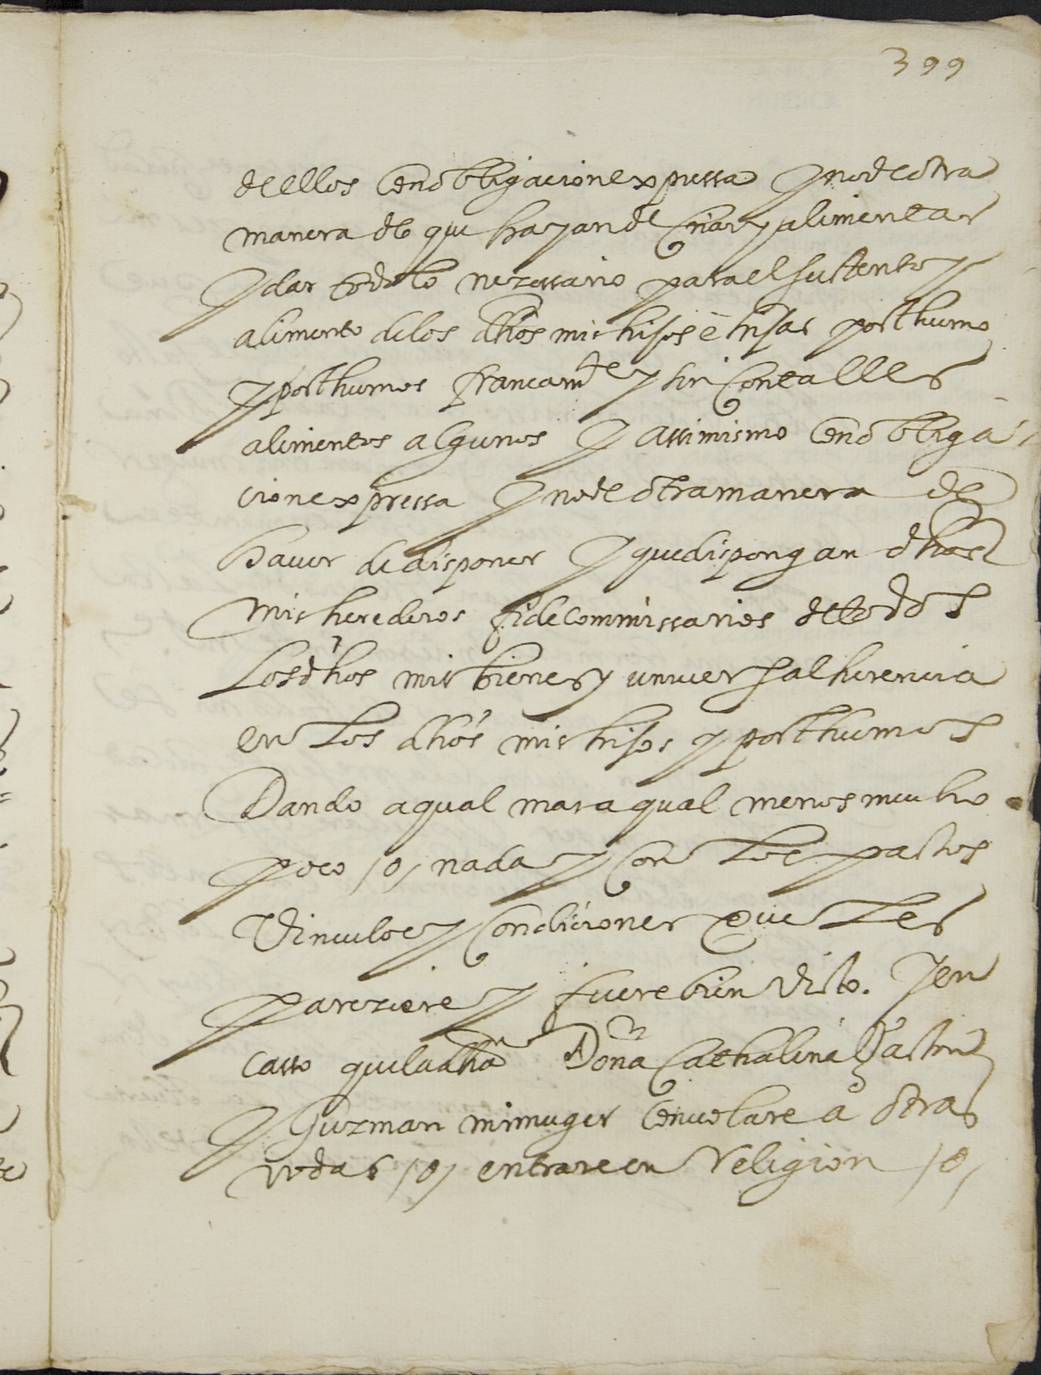 399
de ellos con obligacion expressa y no de otra
manera de que hayan de criar y alimentar
y dar todo lo nezessario para el sustento y
alimento de los dhos mis hijos é hijas posthumo
y posthumos francamte y sin contalles
alimentos algunos y assimismo con obliga
cion expressa y no de otra manera de
haver de disponer y que dispongan dhos
mis herederos fidecommissarios de todos
los dhos mis bienes y universal herencia
en los dhos mis hijos y posthumos
Dando a qual mas a qual menos mucho
poco /o/ nada y con los pactos
vinculos y condiciones que les
pareziere y fuere bien visto. Y en
casso que la dha Doña Cathalina Paston
y Guzman mi muger convolare a otras
vodas /o/ entrare en Religion /o/